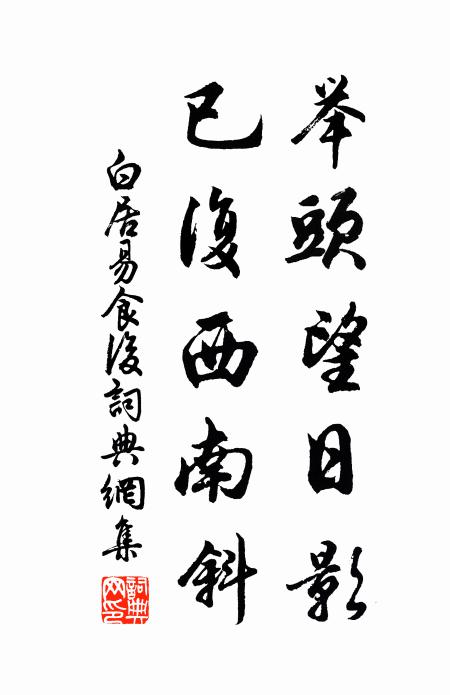 举頭望日影
已復西南斜
白居易食後詞典網集
詞典網印